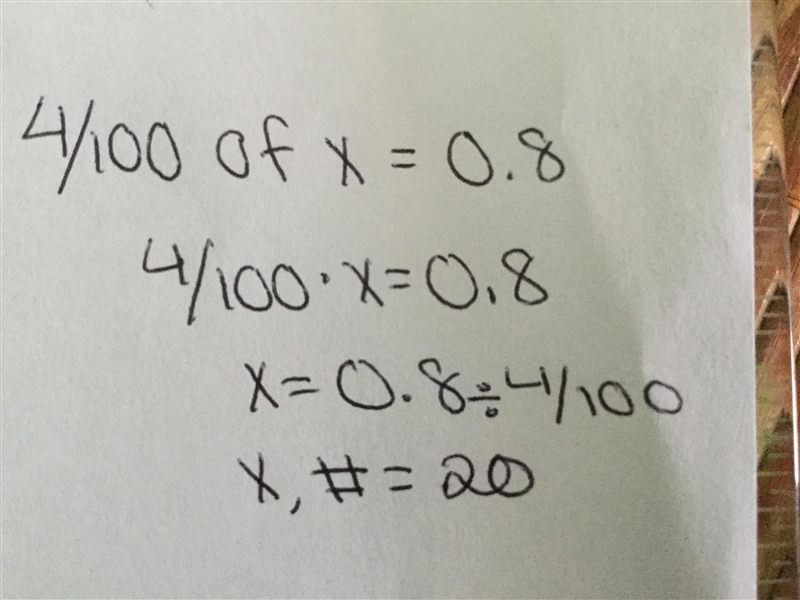 4/100 of x = 0.8
4/100 · x = 0.8
x = 0.8 ÷ 4/100
x, # = 20